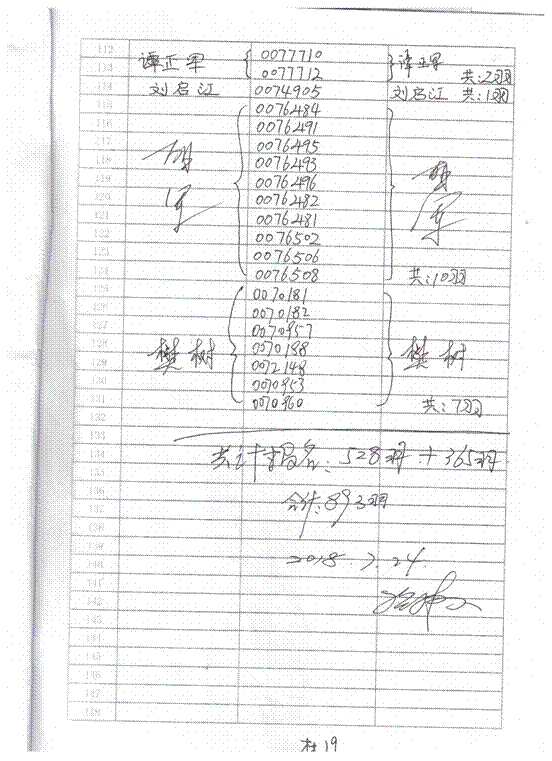 112 0077710
谭正军 谭正军
113 0077712 共:2羽
114 刘启江 0074905 刘启江 共:1羽
115 0076484
116 0076491
117 0076495
118 0076493
119 0076496
120 0076482
121 0076481
122 0076502
123 0076506
124 0076508 共:10羽
125 0070181
126 0070182
127 0070957
128 0070188
樊树 樊树
129 0072148
130 0070953
131 0070960 共:7羽
132
133
134 共计报名:528羽+365羽
135
136
137 合计:893羽
138
139
140 2018 7.24
141
142
143
144
145
146
147
148
杜19